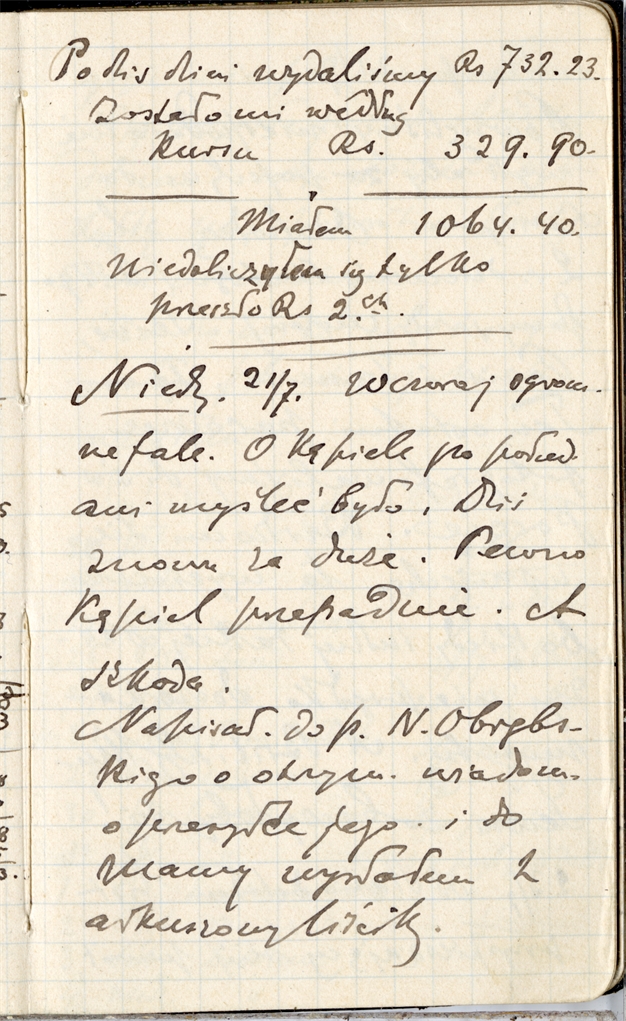 Po dziś dzień wydaliśmy Rs 732.23.
Zostało mi według
Kursu Rs. 329.90.
Miałem 1064.40.
Niedoliczyłem się tylko
przeszło Rs 2.ch.
Niedz. 21/7. Wczoraj ogrom-
ne fale. O Kąpieli po połud.
ani myśleć było. Dziś
znowu za duże. Pewno
Kąpiel przepadnie. A
szkoda.
Napisał. do p. N. Obrębs-
kigo o otrzym. wiadom.
o przesyłce jego. i do
Mamy wysłałem 2
arkuszowy liścik.